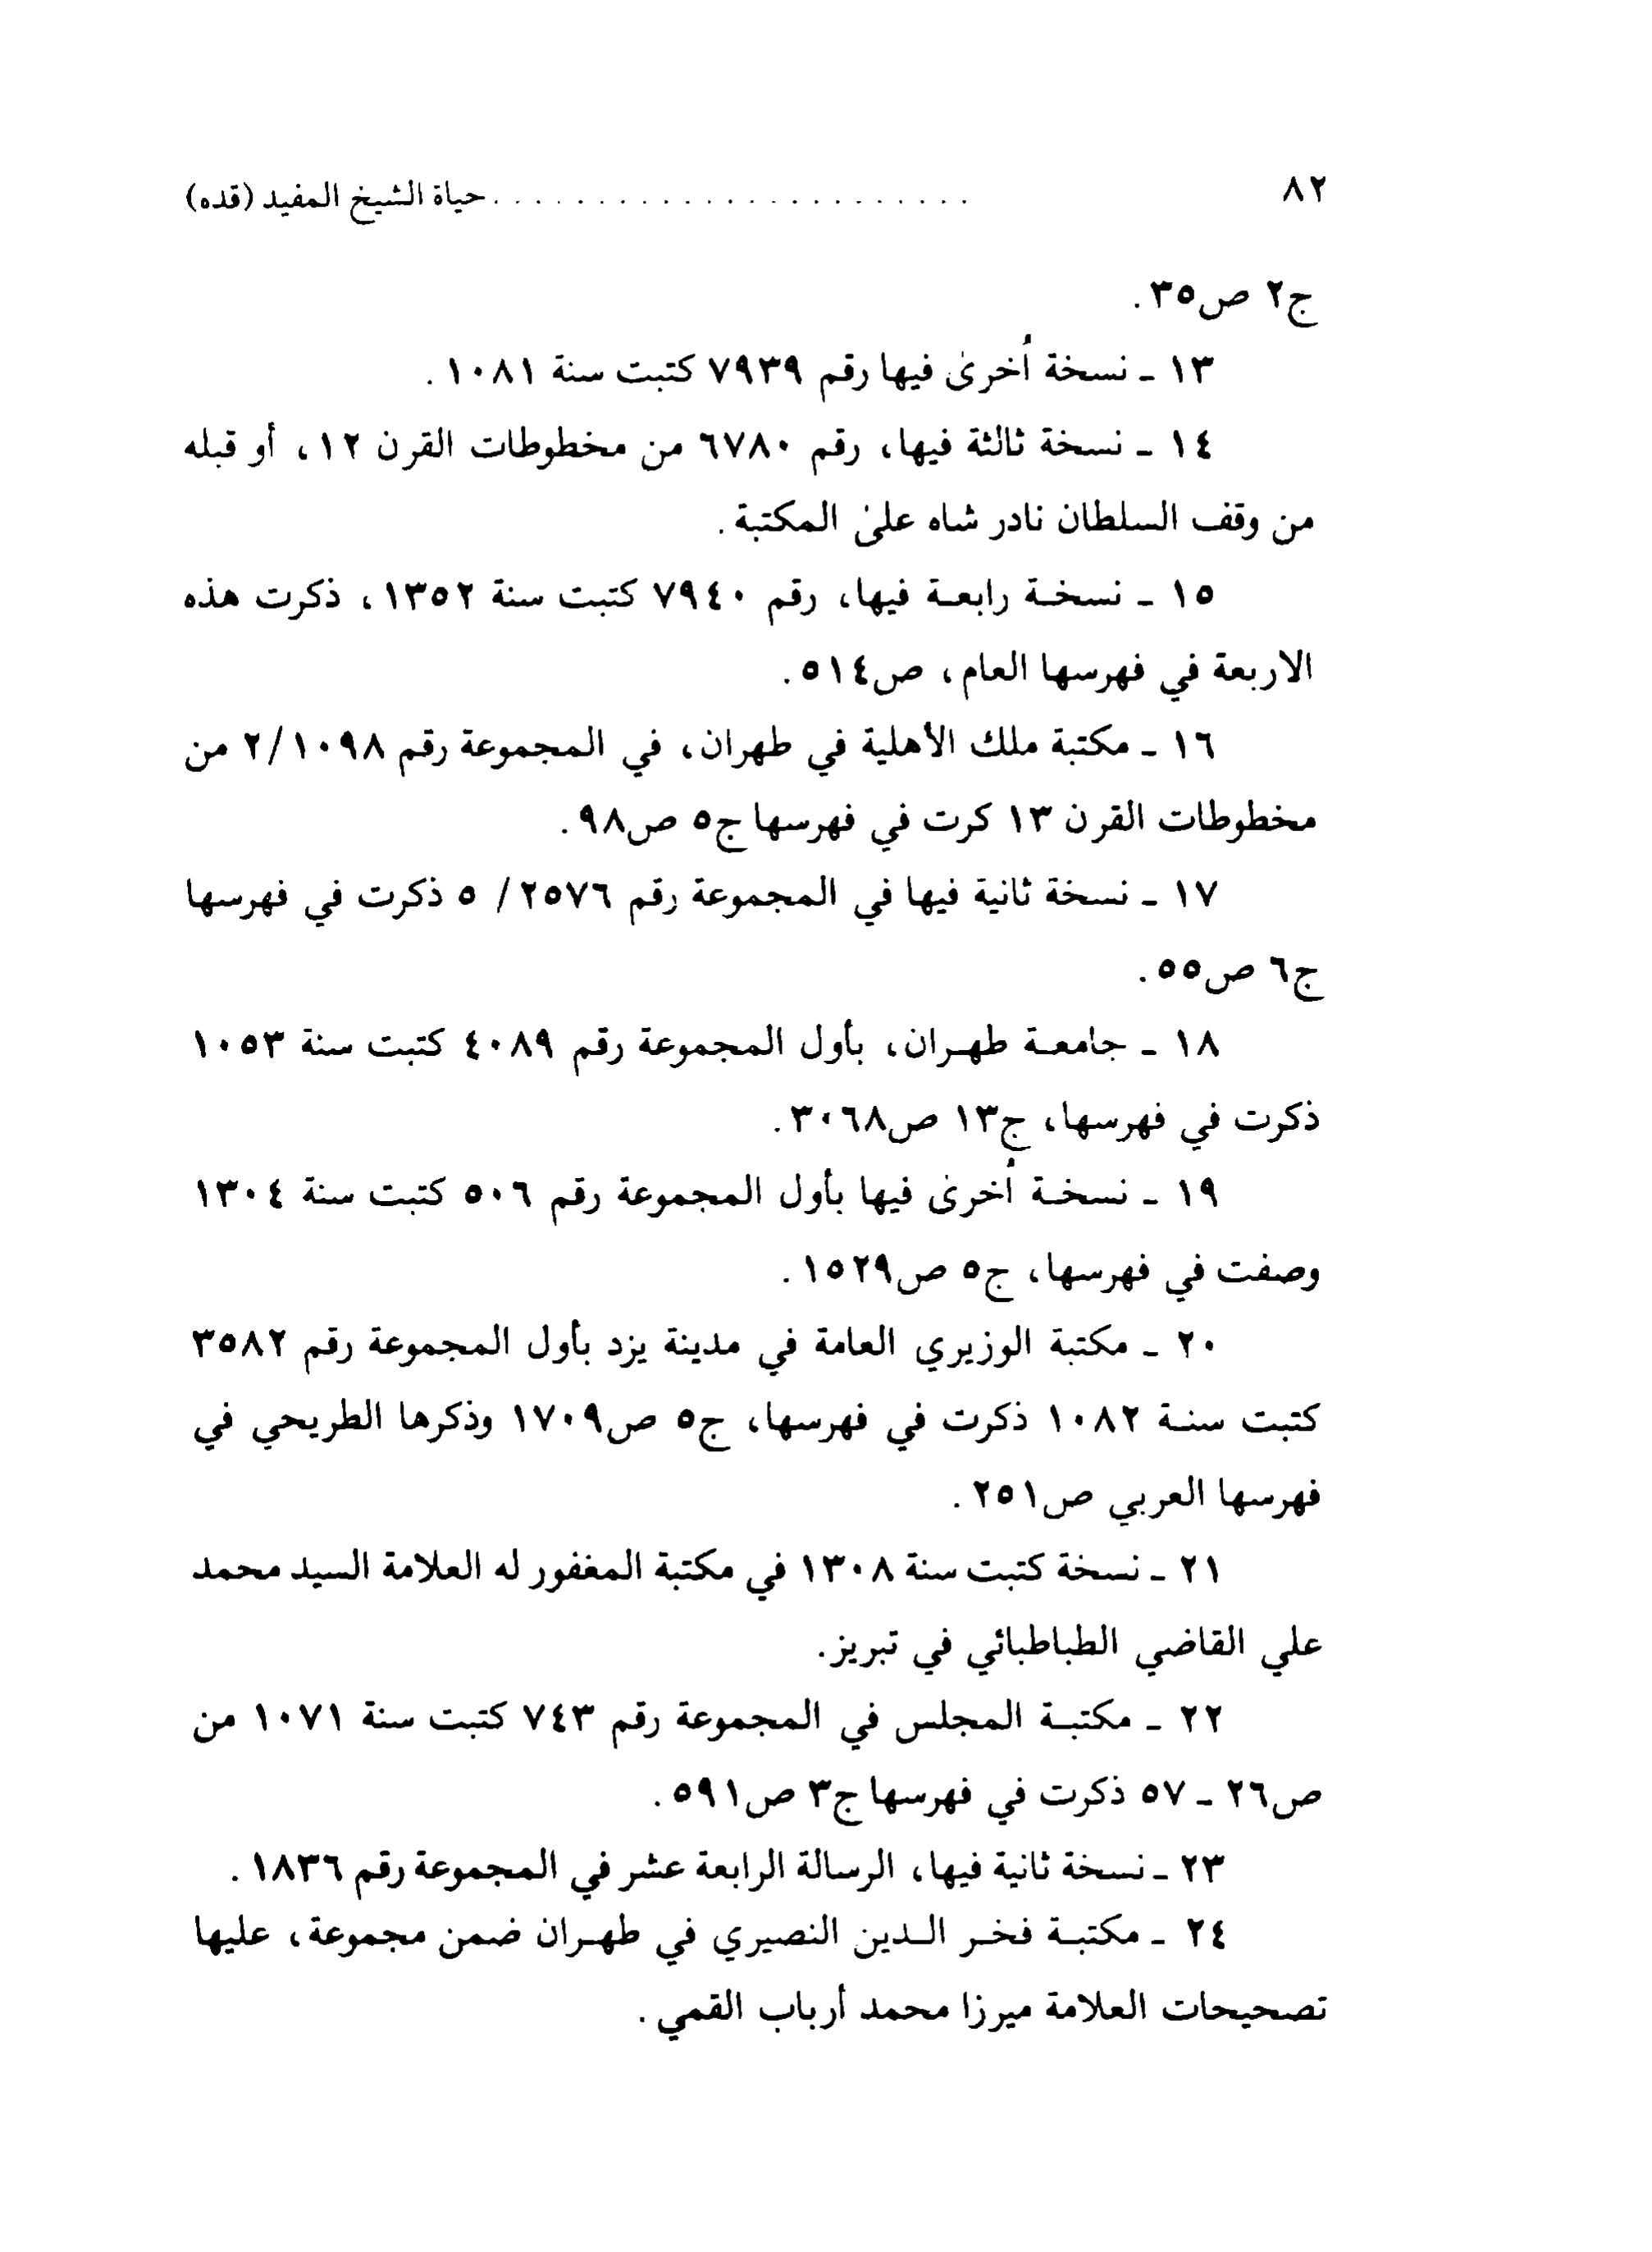 ٨٢ . . . . . . . . . . . . . . . . . . . . . . . حياة الشيخ المفيد (قده)
ج٢ ص٣٥.
١٣ ـ نسخة أُخرىٰ فيها رقم ٧٩٣٩ كتبت سنة ١٠٨١.
١٤ ـ نسخة ثالثة فيها، رقم ٦٧٨٠ من مخطوطات القرن ١٢، أو قبله
من وقف السلطان نادر شاه علىٰ المكتبة.
١٥ ـ نسخة رابعة فيها، رقم ٧٩٤٠ كتبت سنة ١٣٥٢، ذكرت هذه
الاربعة في فهرسها العام، ص٥١٤.
١٦ ـ مكتبة ملك الأهلية في طهران، في المجموعة رقم ٢/١٠٩٨ من
مخطوطات القرن ١٣ كرت في فهرسها ج٥ ص٩٨.
١٧ ـ نسخة ثانية فيها في المجموعة رقم ٢٥٧٦/ ٥ ذكرت في فهرسها
ج٦ ص٥٥.
١٨ ـ جامعة طهران، بأول المجموعة رقم ٤٠٨٩ كتبت سنة ١٠٥٣
ذكرت في فهرسها، ج١٣ ص٣٠٦٨.
١٩ ـ نسخة أُخرىٰ فيها بأول المجموعة رقم ٥٠٦ كتبت سنة ١٣٠٤
وصفت في فهرسها، ج٥ ص١٥٢٩.
٢٠ ـ مكتبة الوزيري العامة في مدينة يزد بأول المجموعة رقم ٣٥٨٢
كتبت سنة ١٠٨٢ ذكرت في فهرسها، ج٥ ص١٧٠٩ وذكرها الطريحي في
فهرسها العربي ص٢٥١.
٢١ ـ نسخة كتبت سنة ١٣٠٨ في مكتبة المغفور له العلامة السيد محمد
علي القاضي الطباطبائي في تبريز.
٢٢ ـ مكتبة المجلس في المجموعة رقم ٧٤٣ كتبت سنة ١٠٧١ من
ص٢٦ ـ ٥٧ ذكرت في فهرسها ج٣ ص٥٩١.
٢٣ ـ نسخة ثانية فيها، الرسالة الرابعة عشر في المجموعة رقم ١٨٣٦.
٢٤ ـ مكتبة فخر الدين النصيري في طهران ضمن مجموعة، عليها
تصحيحات العلامة ميرزا محمد أرباب القمي.